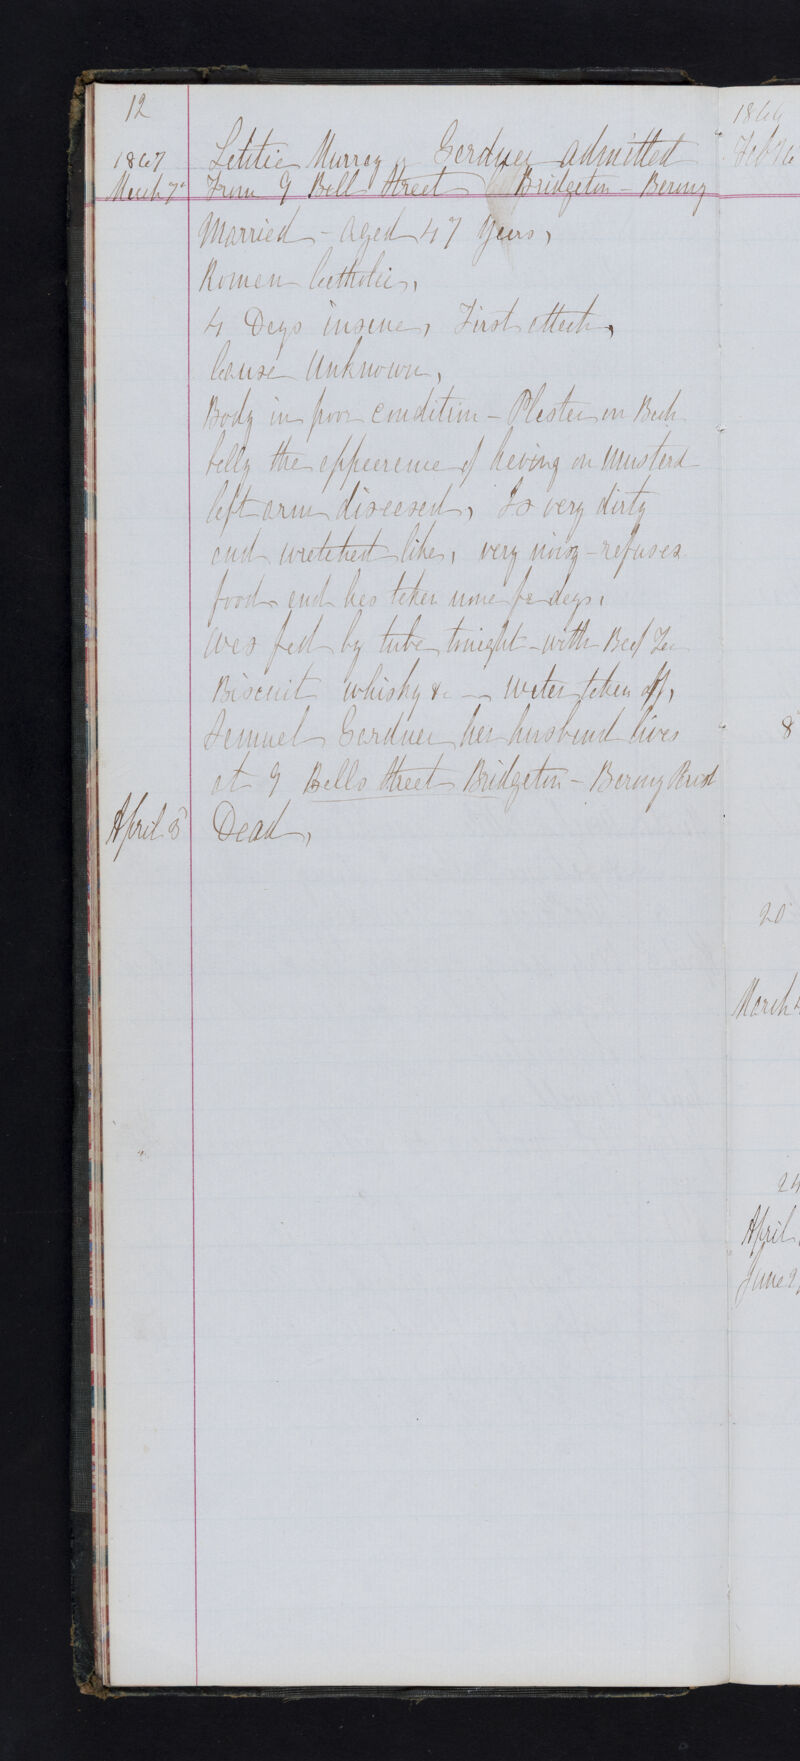 12
1867 Letitia Murray or Gardner admitted
March 7th From 9 Bell Street Bridgeton - Barony
Married - aged 47 years,
Roman Catholic,
4 Days insane, First attack,
Cause Unknown,
Body in poor condition - Plaster on Back
belly the appearance of having on mustard
left arm diseased, Is very dirty
and wretched like, very noisy - refuses
food and has taken none for days.
Was fed by tube tonight - with Beef Tea
Biscuit whisky &c - water taken off,
Samuel Gardner her husband lives
at 9 Bells Street Bridgeton - Barony Parish
April 8 Dead,
1867
Feb 26
8
20
March 4
April
June 2